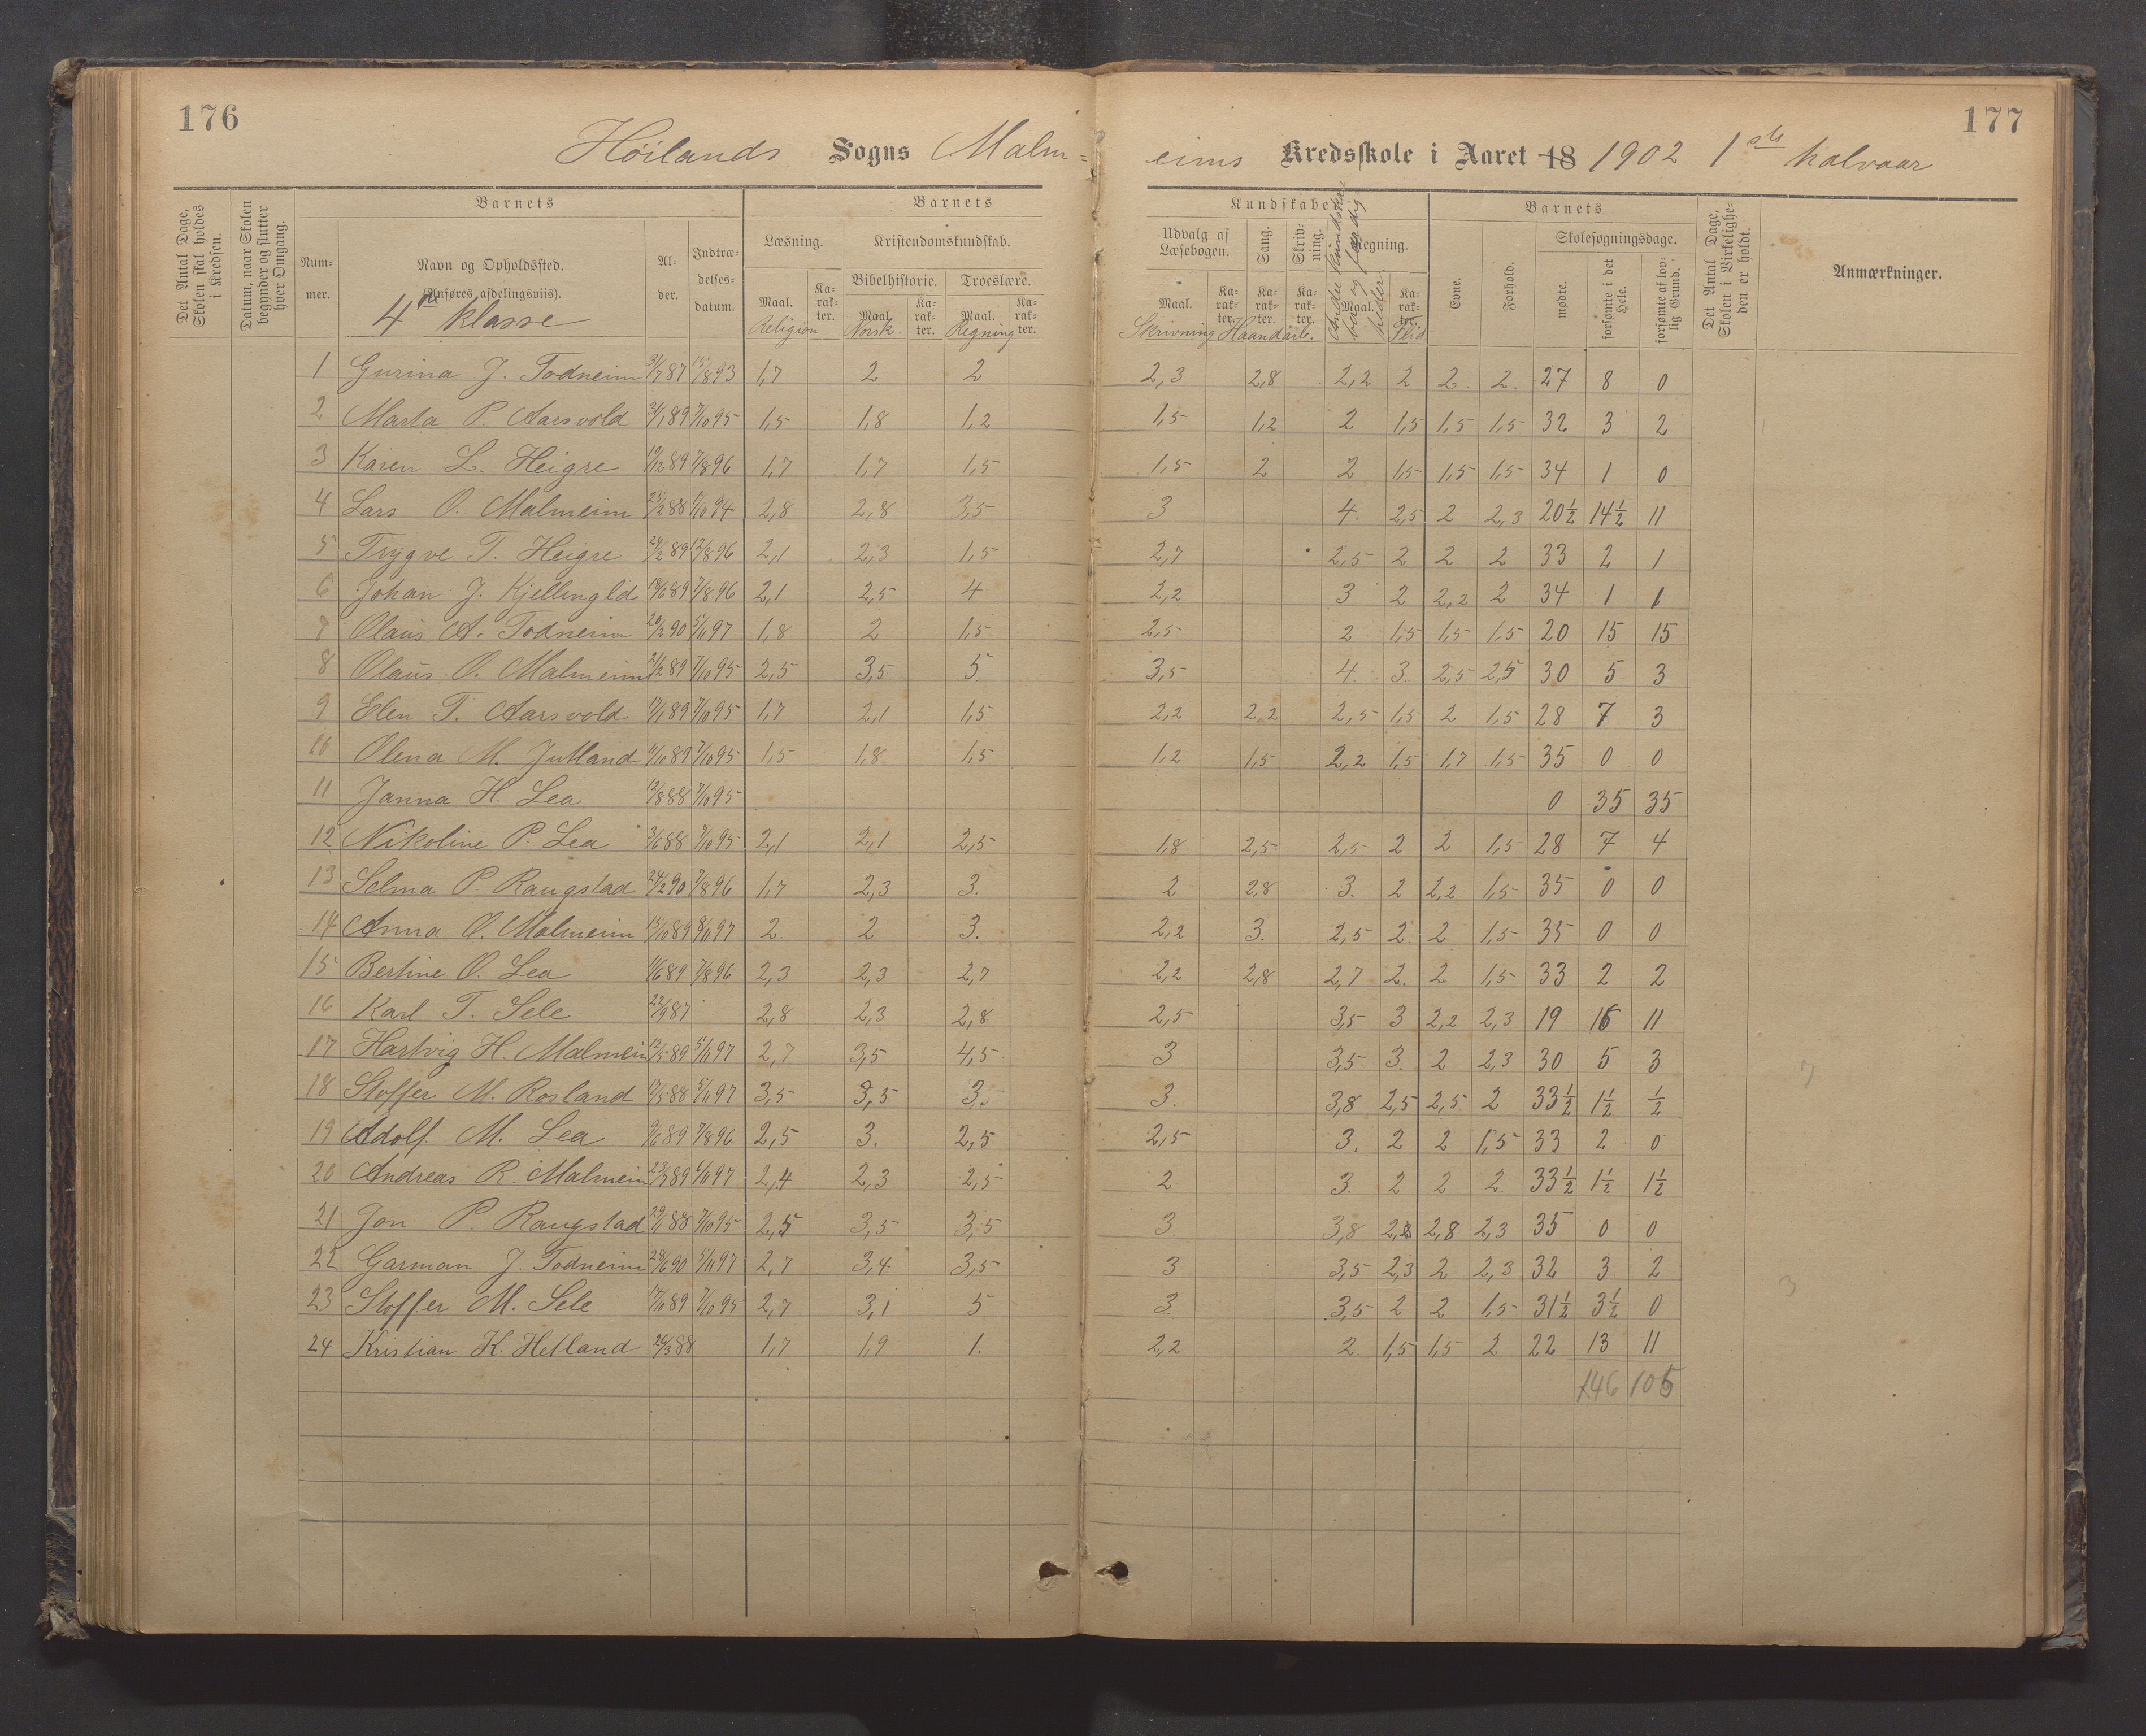 176
177
Höilands Sogns Malm=
eims Kredsskole i Aaret 18 1902 1ste halvaar
Det Antal Dage, Skolen skal holdes i Kredsen.
Datum, naar Skolen begynder og slutter hver Omgang.
Barnets
Num- mer.
Navn og Opholdssted.
(Anføres afdelingsviis).
4de klasse
Al- der.
Indtræ- delses- datum.
Barnets
Læsning.
Kristendomskundskab.
Bibelhistorie. Troeslære.
Maal. Ka- rak- ter. Maal. Ka- rak- ter. Maal. Ka- rak- ter.
Religion Norsk. Regning
Kundskaber
Udvalg af Læsebogen. Sang. Skriv- ning. Regning.
Andre kundska= ber og færdig= heder
Maal. Ka- rak- ter. Ka- rak- ter. Ka- rak- ter. Maal. Ka- rak- ter.
Skrivning Haandarb. Flid
Barnets
Evne. Forhold.
Skolesøgningsdage.
mødte. forsømte i det Hele. forsømte af lov- lig Grund.
Det Antal Dage, Skolen i Virkelighe- den er holdt.
Anmærkninger.
1 Gurina J. Todneim 31/7 87 15/8 93 1,7 2 2 2,3 2,8 2,2 2 2. 2. 27 8 0
2 Marta P. Aarsvold 31/1 89 7/10 95 1,5 1,8 1,2 1,5 1,2 2 1,5 1,5 1,5 32 3 2
3 Karen L. Heigre 19/12 89 7/8 96 1,7 1,7 1,5 1,5 2 2 1,5 1,5 1,5 34 1 0
4 Lars O. Malmeim 23/2 88 1/10 94 2,8 2,8 3,5 3 4. 2,5 2 2,3 20½ 14½ 11
5 Trygve T. Heigre 24/2 89 12/8 96 2,1 2,3 1,5 2,7 2,5 2 2 2 33 2 1
6 Johan J. Kjellinglid 18/6 89 7/8 96 2,1 2,5 4 2,2 3 2 2,2 2 34 1 1
7 Olaus A. Todneim 20/2 90 5/11 97 1,8 2 1,5 2,5 2 1,5 1,5 1,5 20 15 15
8 Olaus O. Malmeim 21/2 89 7/10 95 2,5 3,5 5 3,5 4. 3. 2,5 2,5 30 5 3
9 Elen T. Aarsvold 17/1 89 7/10 95 1,7 2,1 1,5 2,2 2,2 2,5 1,5 2 1,5 28 7 3
10 Olena M. Jutland 11/10 89 7/10 95 1,5 1,8 1,5 1,2 1,5 2,2 1,5 1,7 1,5 35 0 0
11 Janna H. Lea 12/8 88 7/10 95 0 35 35
12 Nikoline P. Lea 3/6 88 7/10 95 2,1 2,1 2,5 1,8 2,5 2,5 2 2 1,5 28 7 4
13 Selma P. Raugstad 24/2 90 7/8 96 1,7 2,3 3. 2 2,8 3. 2 2,2 1,5 35 0 0
14 Anna O. Malmeim 15/10 89 8/11 97 2. 2 3. 2,2 3. 2,5 2. 2 1,5 35 0 0
15 Bertine O. Lea 11/6 89 7/8 96 2,3 2,3 2,7 2,2 2,8 2,7 2. 2 1,5 33 2 2
16 Karl T. Sele 22/9 87 2,8 2,3 2,8 2,5 3,5 3 2,2 2,3 19 16 11
17 Hartvig H. Malmeim 12/5 89 5/11 97 2,7 3,5 4,5 3 3,5 3. 2 2,3 30 5 3
18 Stoffer M. Rosland 17/5 88 5/11 97 3,5 3,5 3. 3. 3,8 2,5 2,5 2 33½ 1½ ½
19 Adolf M. Lea 9/6 89 7/8 96 2,5 3. 2,5 2,5 3. 2 2 1,5 33 2 0
20 Andreas R. Malmeim 23/7 89 6/11 97 2,4 2,3 2,5 2 3. 2 2 2 33½ 1½ 1½
21 Jon P. Raugstad 29/1 88 7/10 95 2,5 3,5 3,5 3 3,8 2,8 2,8 2,3 35 0 0
22 Garman J. Todneim 28/6 90 5/11 97 2,7 3,4 3,5 3 3,5 2,3 2 2,3 32 3 2
23 Stoffer M. Sele 17/10 89 7/10 95 2,7 3,1 5 3. 3,5 2 2 1,5 31½ 3½ 0
24 Kristian K. Hetland 26/3 88 1,7 1,9 1. 2,2 2. 1,5 1,5 2 22 13 11
146 105